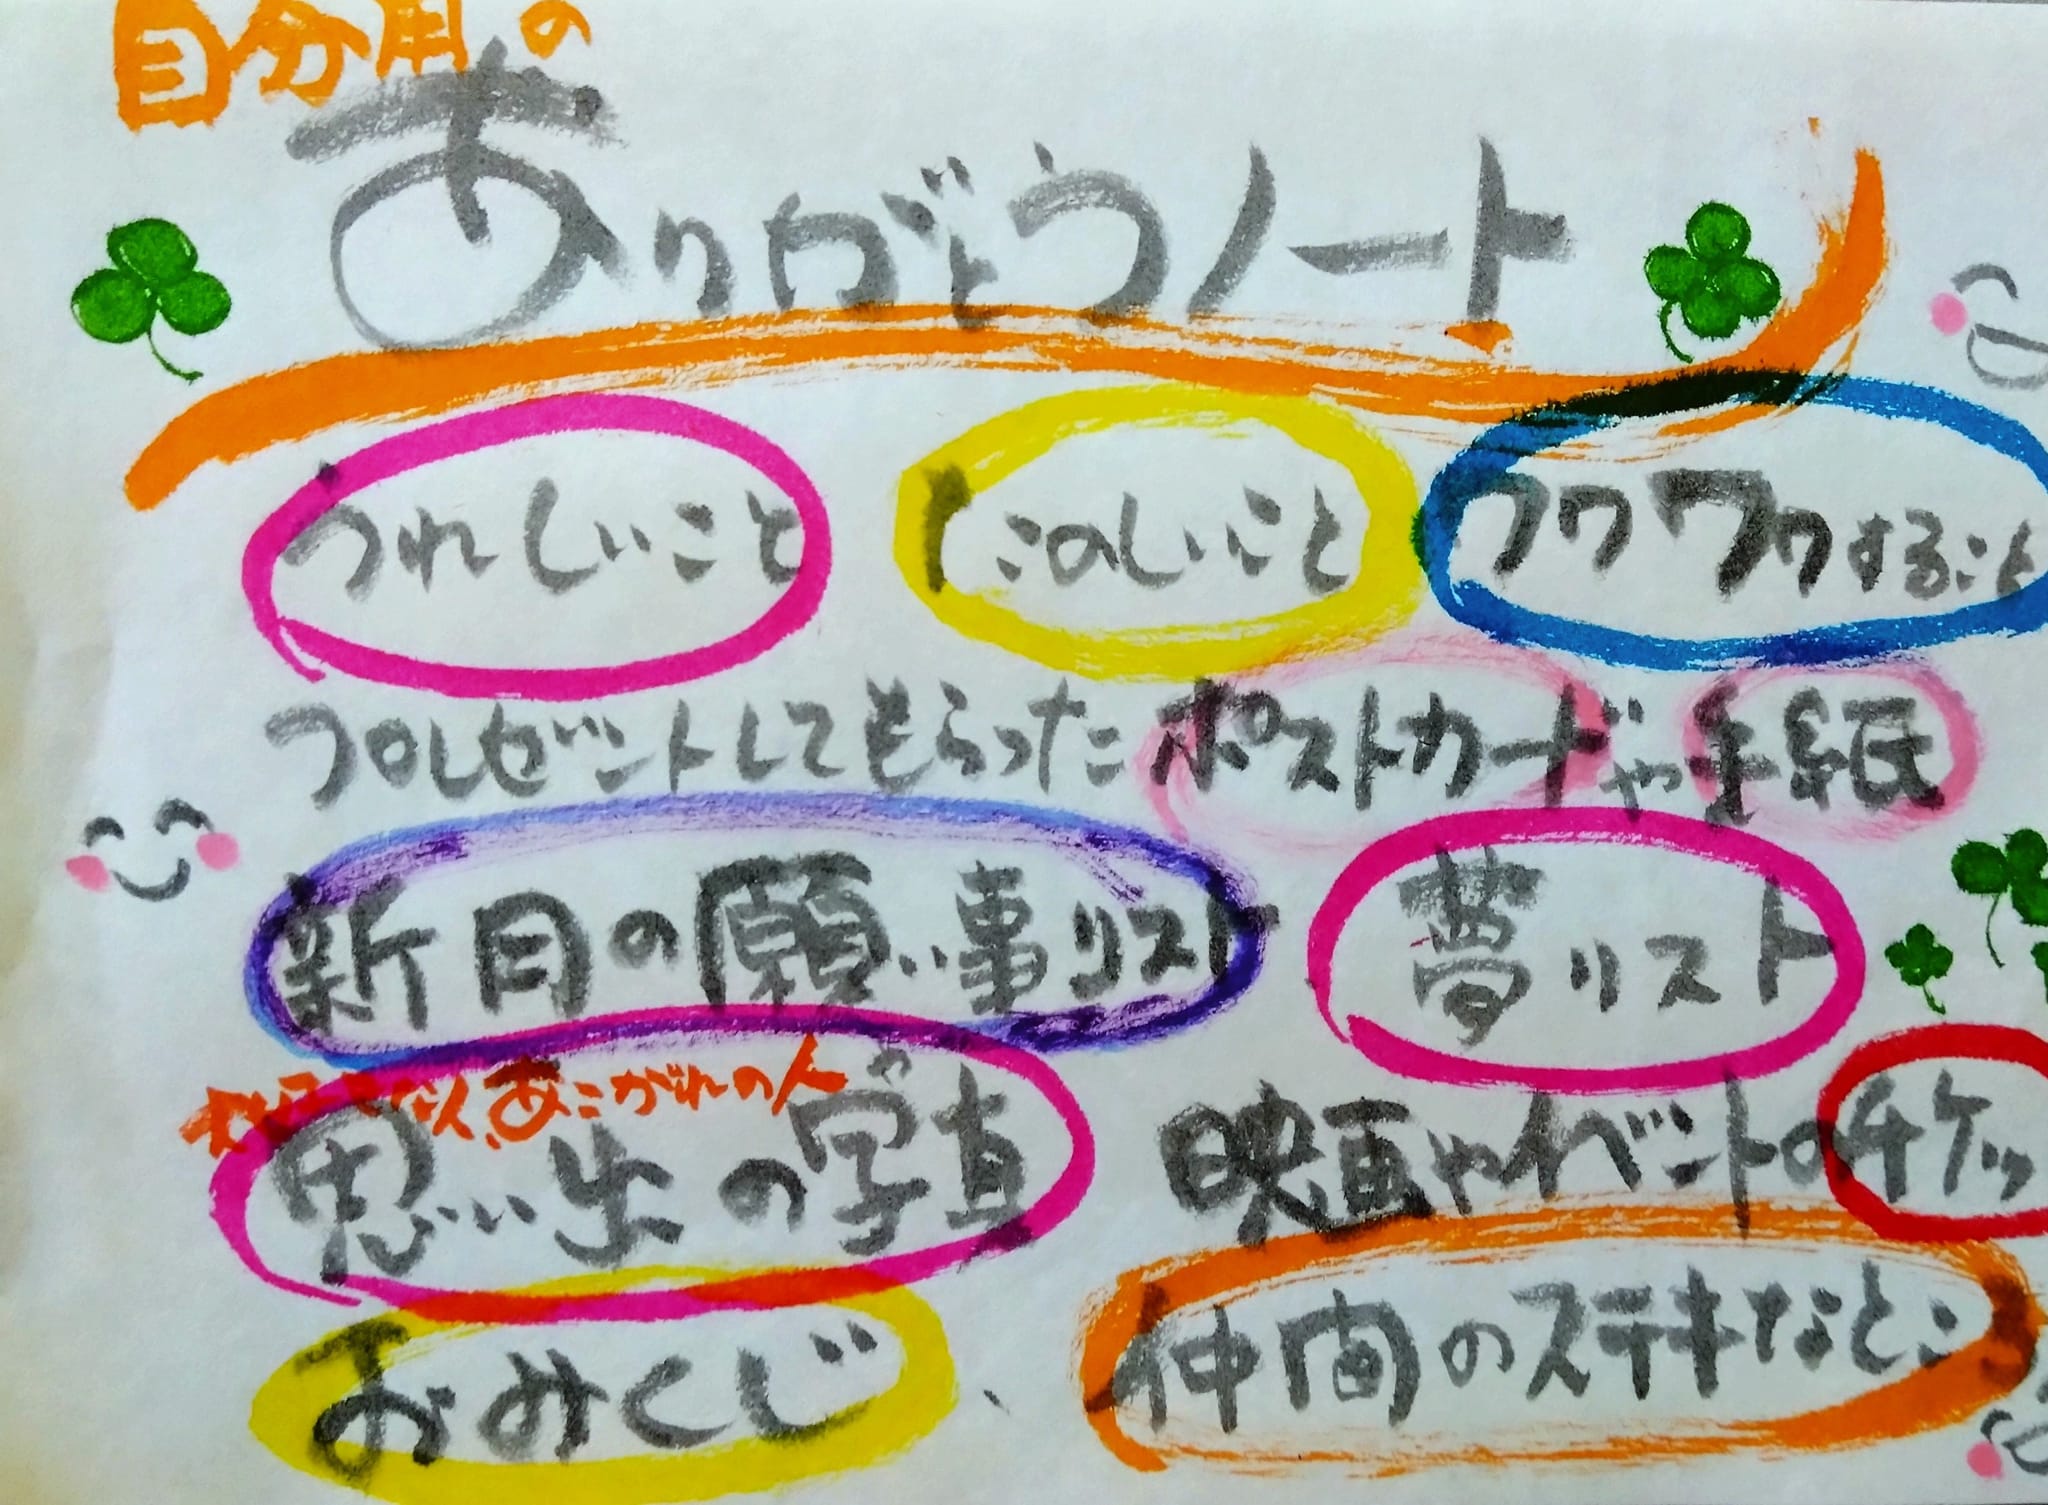 自分用の
ありがとうノート
うれしいこと たのしいこと ワクワクすること
プレゼントしてもらったポストカードや手紙
新月の願い事リスト 夢リスト
あこがれの人や
思い出の写真 映画やイベントのチケッ
おみくじ 仲間のステキなとこ